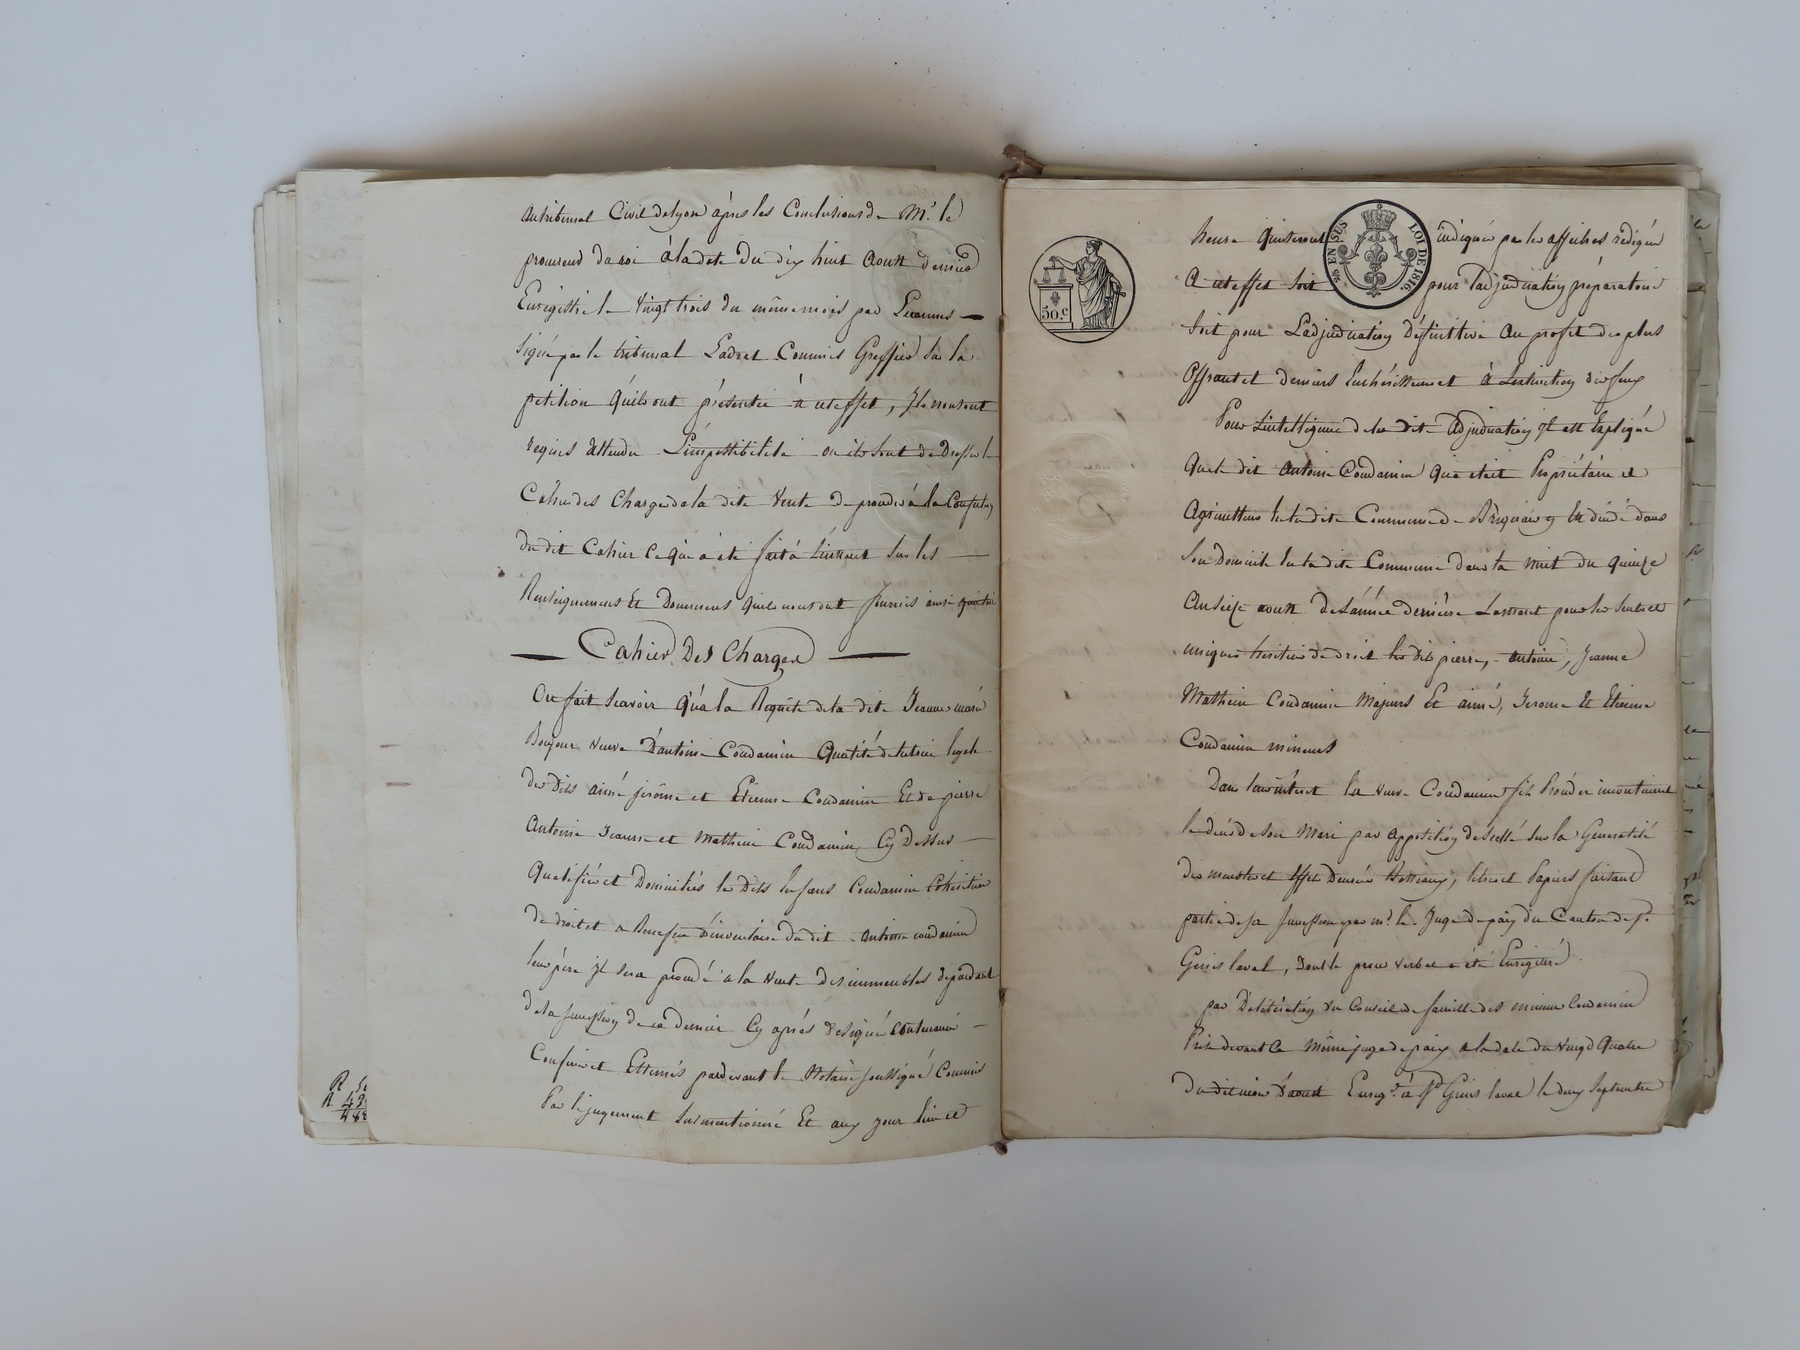 autribunal Civil delyon àpres les Conclusions de Mr. le
procureur du roi à ladate du dix huit aoust dernier
Enregistré le vingt trois du même mois par
Signé par le tribunal Ladret Commis Greffier Sur la
petition quils ont présentée à cet effet, Ils nous ont
requis attendu L'impossibilité ou ils Sont de Dresser le
Cahier des Charges de la dite Vente de proceder à la Confection
du dit Cahier Ce qui a été fait à Linstant Sur les
Renseignements Et Documens quils nous ont fournis ainsi quil suit
Cahier Des Charges
On fait Scavoir Qu'à la Requête de la dite Jeanne marie
Bonjour veuve D'antoine Condamin Qualité de tutrice legale
des Dits aimé jerôme et Etienne Condamin Et de pierre
Antoine Jeanne et Mathieu Condamin, Cy Dessus
Qualifiés et Domiciliés les Dits Enfans Condamin Cohéritiers
de droit et a Benefice d'inventaire du dit antoine condamin
leur père il Sera procedé a la vente des immeubles dépendant
de la Succession de ce dernier Cy après désigné Contenance
Confins et Estimés pardevant le Notaire soussigné Commis
Par le jugement Susmentionné Et aux jour lieu et
R
R 42
48
heure qui Seront indiqués par les affiches rédigées
A cet effet Soit pour Ladjudication préparatoire
Soit pour Ladjudication Définitive au profit des plus
Offrant et derniers Enchérisseurs et à Lextinction des feux
Pour Lintelligence de la dite Adjudication Il est Expliqué
Que le dit antoine Condamin Qui etoit Propriétaire et
Agriculteur En la dite Commune de Brignais Est décédé dans
Son Domicile En la dite Commune dans la Nuit du quinze
Au Seize aoust de L'année dernière Laissant pour les Seuls et
uniques héritiers de droit les dits pierre, antoine, Jeanne
Mathieu Condamin Majeurs Et aimé, Jerome Et Etienne
Condamin mineurs
Dans leur intéret la veuve Condamin fit Procéder incontinent
le décès de Son Mari par apposition de Scellé Sur la Generalité
des meubles et Effets Denrées Bestiaux, titres et Papiers faisant
partie de sa Succession par mr. le Juge de paix du Canton de St.
Genis laval, Dont le procès verbal a été Enregistré
par Délibération du Conseil de famille des mineurs Condamin
Prise devant Ce Même juge de paix a la date du Vingt Quatre
Du dit mois D'aoust Enregt. à St Genis laval le deux Septembre
50.c
LOI DE 1816.